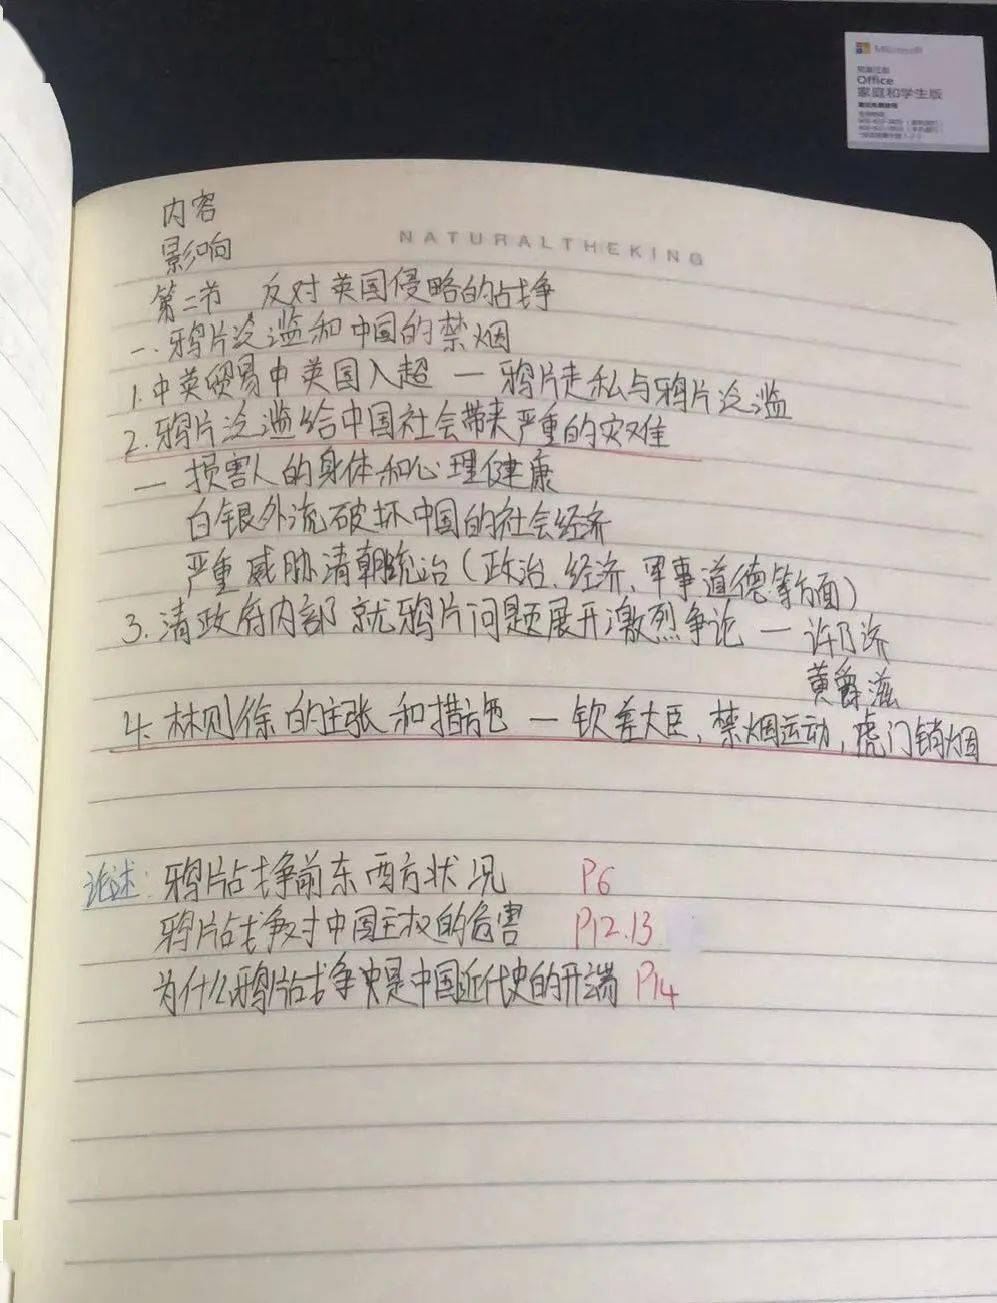 Microsoft
Office
家庭和学生版
内容
NATURALTHEKING
影响
第二节 反对英国侵略的战争
一.鸦片泛滥和中国的禁烟
1.中英贸易中英国入超 — 鸦片走私与鸦片泛滥
2.鸦片泛滥给中国社会带来严重的灾难
— 损害人的身体和心理健康
白银外流破坏中国的社会经济
严重威胁清朝统治(政治、经济、军事道德等方面)
3.清政府内部就鸦片问题展开激烈争论 — 许乃济
黄爵滋
4.林则徐的主张和措施 — 钦差大臣,禁烟运动,虎门销烟
论述:鸦片战争前东西方状况 P6
鸦片战争对中国主权的危害 P12.13
为什么鸦片战争是中国近代史的开端 P14